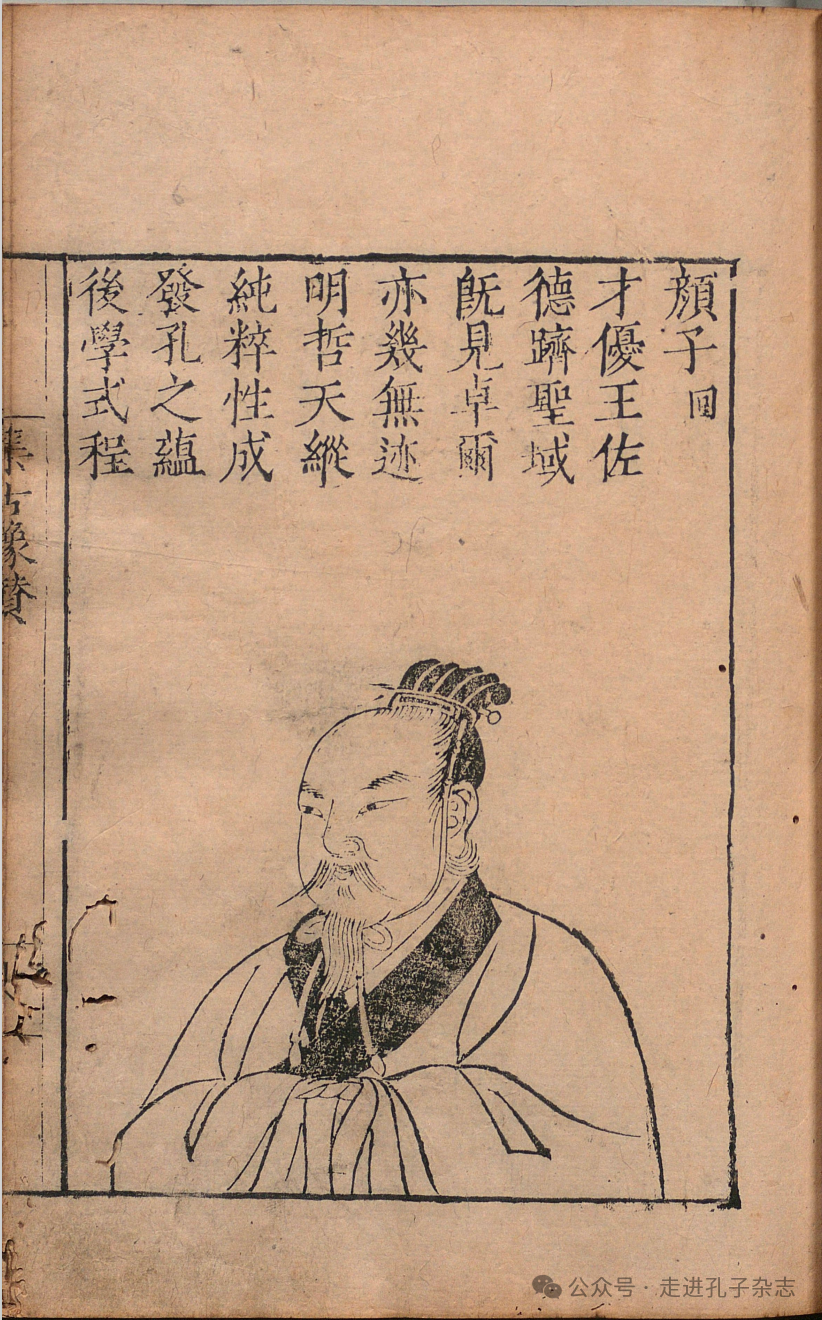 顏子回
才優王佐
德躋聖域
旣見卓爾
亦幾無迹
明哲天縱
純粹性成
發孔之蘊
後學式程
集古像贊
公众号·走进孔子杂志